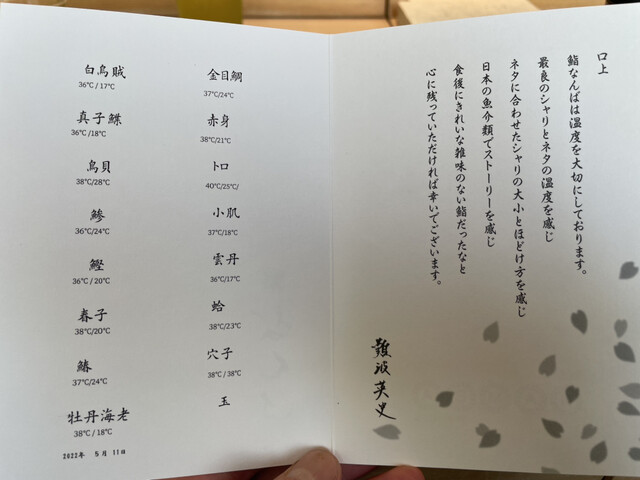 口上
鮨なんばは温度を大切にしております。
最良のシャリとネタの温度を感じ
ネタに合わせたシャリの大小とほどけ方を感じ
日本の魚介類でストーリーを感じ
食後にきれいな雑味のない鮨だったなと
心に残っていただければ幸いでございます。
難波英史
白烏賊
36℃ / 17℃
真子鰈
36℃ /18℃
鳥貝
38℃/28℃
鯵
36℃/24℃
鰹
36℃ / 20℃
春子
38℃/20℃
鰆
37℃/24℃
牡丹海老
38℃ / 18℃
2022年 5月 11日
金目鯛
37℃/24℃
赤身
38℃/21℃
トロ
40℃/25℃/
小肌
37℃/18℃
雲丹
36℃/17℃
蛤
38℃/23℃
穴子
38℃ / 38℃
玉